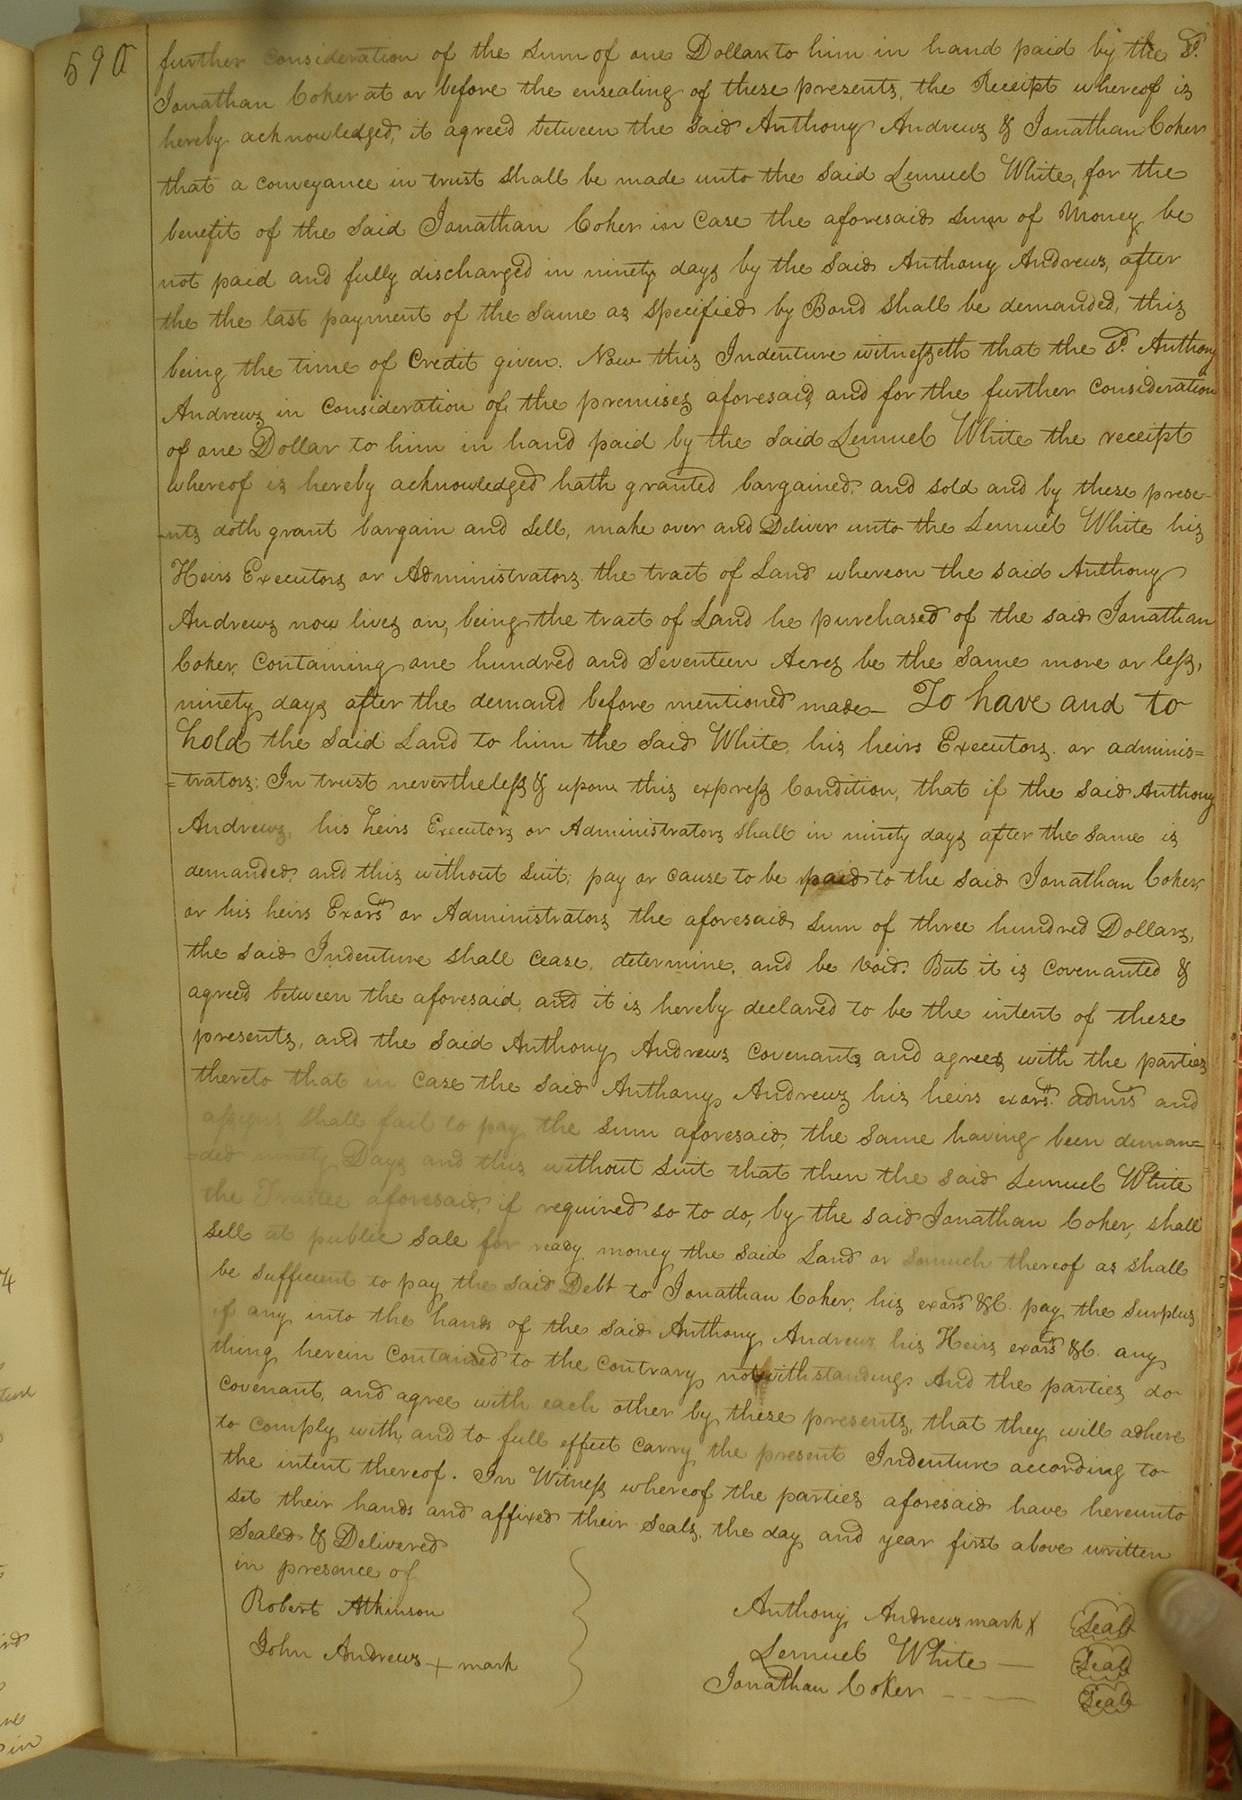 590
further consideration of the sum of one Dollar to him in hand paid by the Sd.
Jonathan Coker at or before the ensealing of these presents, the Receipt whereof is
hereby acknowledged, it agreed between the said Anthony Andrews & Jonathan Coker
that a conveyance in trust shall be made unto the said Lemuel White, for the
benefit of the said Jonathan Coker in case the aforesaid sum of Money be
not paid and fully discharged in ninety days by the said Anthony Andrews, after
the the last payment of the same as specified by Bond shall be demanded, this
being the time of Credit given. Now this Indenture witnesseth that the Sd. Anthony
Andrews in consideration of the premises aforesaid and for the further consideration
of one Dollar to him in hand paid by the said Lemuel White the receipt
whereof is hereby acknowledged hath granted bargained, and sold and by these prese-
-nts doth grant bargain and sell, make over and Deliver unto the Lemuel White his
Heirs Executors or Administrators the tract of Land whereon the said Anthony
Andrews now lives on, being the tract of Land he purchased of the said Jonathan
Coker, containing one hundred and seventeen Acres be the same more or less,
ninety days after the demand before mentioned made- To have and to
hold the said Land to him the said White, his heirs Executors or adminis=
=trators; In trust nevertheless & upon this express Condition, that if the said Anthony
Andrews, his heirs Executors or Administrators shall in ninety days after the same is
demanded and this without suit, pay or cause to be paid to the said Jonathan Coker
or his heirs Exors or Administrators the aforesaid sum of three hundred Dollars,
the said Indenture shall cease, determine, and be void. But it is covenanted &
agreed between the aforesaid, and it is hereby declared to be the intent of these
presents, and the said Anthony Andrews covenants and agrees with the parties
thereto that in case the said Anthony Andrews his heirs exors. admrs and
assigns shall fail to pay the sum aforesaid, the same having been deman=
=ded ninety Days and this without suit that then the said Lemuel White
the Trustee aforesaid, if required so to do, by the said Jonathan Coker, shall
sell at public sale for ready money the said Land or somuch thereof as shall
be sufficient to pay the said Debt to Jonathan Coker, his exors &C. pay the surplus
if any into the hands of the said Anthony Andrews his Heirs exors &C. any
thing herein contained to the contrary notwithstanding. And the parties do
covenant, and agree with each other by these presents, that they will adhere
to comply with, and to full effect carry the present Indenture according to
the intent thereof. In Witness whereof the parties aforesaid have hereunto
set their hands and affixed their seals, the day and year first above written
Sealed & Delivered
in presence of
Robert Atkinson
John Andrews + mark
Anthony Andrews mark X Seal
Lemuel White — Seal
Jonathan Coker ---- Seal